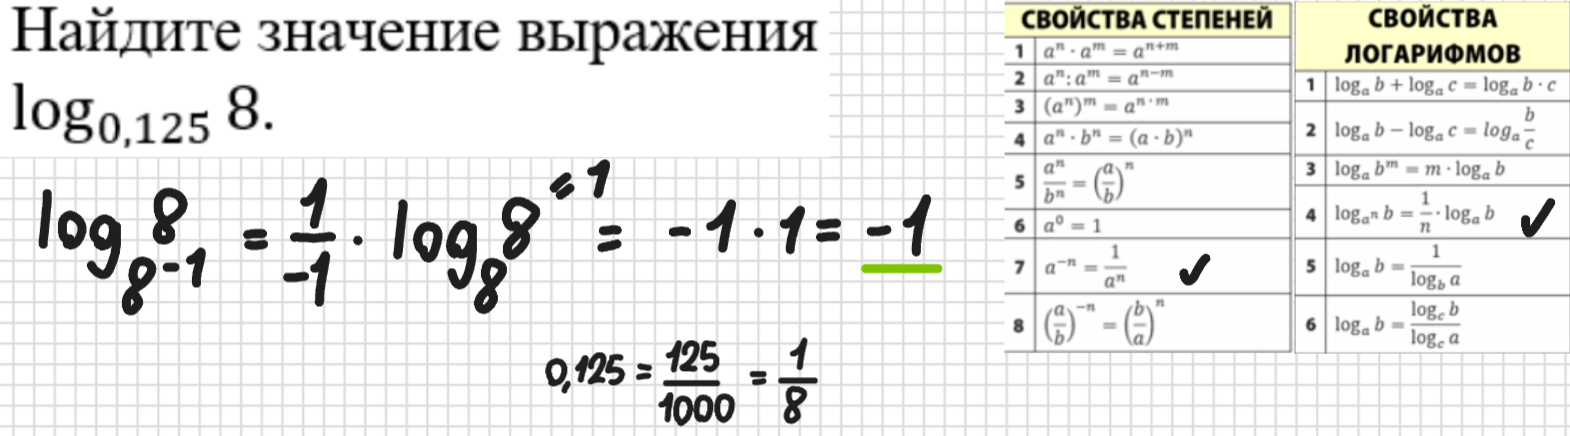 Найдите значение выражения
log₀,₁₂₅ 8.
log₈₋₁ 8 = 1/-1 · log₈ 8 = 1 = -1 · 1 = -1
0,125 = 125/1000 = 1/8
СВОЙСТВА СТЕПЕНЕЙ
1 aⁿ · aᵐ = aⁿ⁺ᵐ
2 aⁿ : aᵐ = aⁿ⁻ᵐ
3 (aⁿ)ᵐ = aⁿ·ᵐ
4 aⁿ · bⁿ = (a · b)ⁿ
5 aⁿ/bⁿ = (a/b)ⁿ
6 a⁰ = 1
7 a⁻ⁿ = 1/aⁿ ✓
8 (a/b)⁻ⁿ = (b/a)ⁿ
СВОЙСТВА
ЛОГАРИФМОВ
1 logₐ b + logₐ c = logₐ b · c
2 logₐ b − logₐ c = logₐ b/c
3 logₐ bᵐ = m · logₐ b
4 log_{aⁿ} b = 1/n · logₐ b ✓
5 logₐ b = 1/log_b a
6 logₐ b = log_c b/log_c a